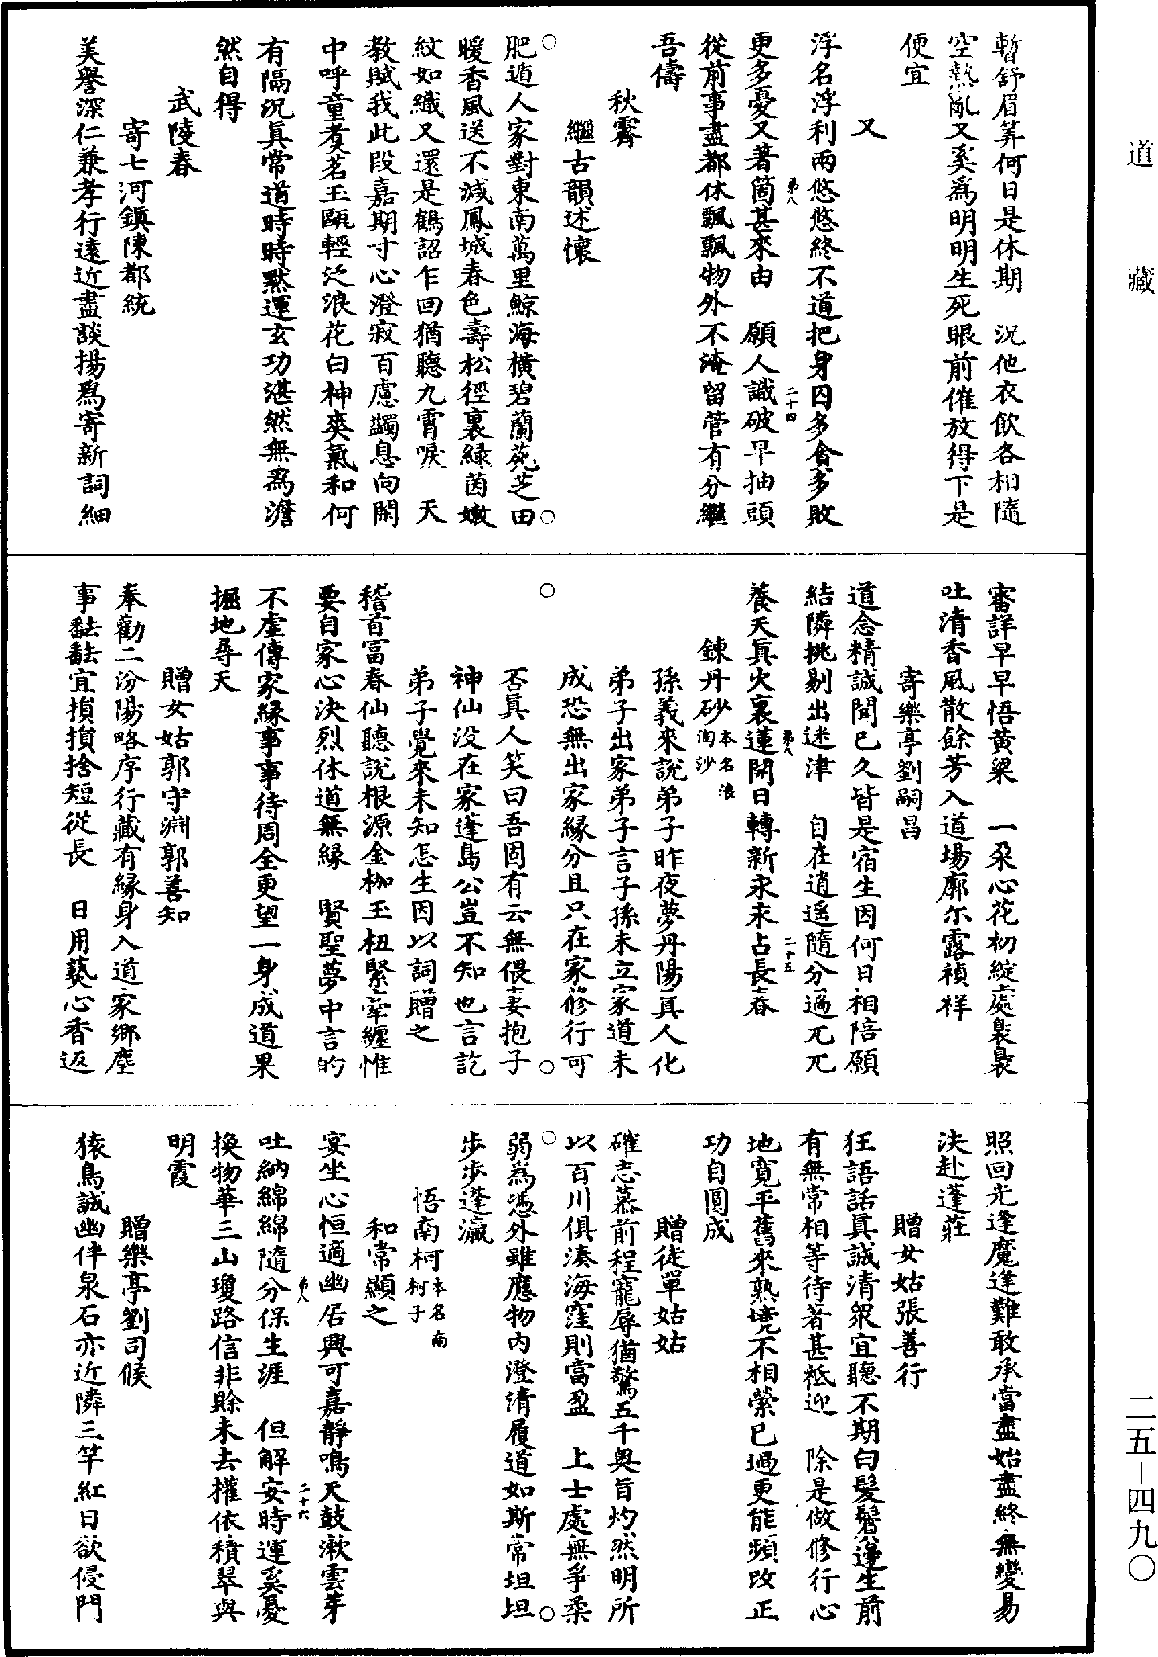 道藏
暫舒眉筭何日是休期　況他衣飲各相隨
空熱亂又奚為明明生死眼前催放得下是
便宜
又
浮名浮利兩悠悠終不道把身囚多會多敗
更多憂又著箇甚來由　願人識破早抽頭
從前事盡都休飄飄物外不淹留管有分繼
吾儔
秋霽
繼古韻述懷
肥遁人家對東南萬里鯨海橫碧蘭苑芝田
暖香風送不減鳳城春色壽松徑裏綠茵嫩
紋如織又還是鶴詔乍回猶聽九霄唳　天
教賦我此段嘉期寸心澄寂百慮蠲息向閑
中呼童煑茗玉甌輕泛浪花白神爽氣和何
有隔況真常道時時黙運玄功湛然無為澹
然自得
武陵春
寄七河鎮陳都統
美譽深仁兼孝行遠近盡談揚為寄新詞細
審詳早早悟黃粱　一朶心花初綻處裊裊
吐清香風散餘芳入道場廓尔露禎祥
寄樂亭劉嗣昌
道念精誠聞已久皆是宿生因何日相陪願
結隣挑剔出迷津　自在逍遥隨分過兀兀
養天真火裏蓮開日轉新永永占長春
鍊丹砂本名浪淘沙
孫義來說弟子昨夜夢丹陽真人化
弟子出家弟子言子孫未立家道未
成恐無出家緣分且只在家修行可
否真人笑曰吾固有云無偎妻抱子
神仙沒在家蓬島公豈不知也言訖
弟子覺來未知怎生因以詞贈之
稽首冨春仙聽說根源金枷玉杻緊牽纏惟
要自家心決烈休道無緣　賢聖夢中言的
不虛傳家緣事事待周全更望一身成道果
掘地尋天
贈女姑郭守淵郭善知
奉勸二汾陽略序行藏有緣身入道家鄉塵
事皶皶宜損損捨短從長　日用爇心香返
照回光逢魔逢難敢承當盡始盡終無變易
決赴蓬莊
贈女姑張善行
狂語話真誠清衆宜聽不期白髮鬢邊生前
有無常相等待著甚祗迎　除是做修行心
地寬平舊來熟境不相縈已過更能頻改正
功自圓成
贈徒單姑姑
確志慕前程寵辱猶驚五千奥旨灼然明所
以百川俱湊海窪則當盈　上士處無爭柔
弱為憑外雖應物內澄清履道如斯常坦坦
步步蓬瀛
悟南柯本名南柯子
和常顯之
宴坐心恒適幽居興可嘉靜鳴天鼓漱雲芽
吐納綿綿隨分保生涯　但解安時運奚憂
換物華三山瓊路信非賖未去權依積翠與
明霞
贈樂亭劉司候
猿鳥誠幽伴泉石亦近隣三竿紅日欲侵門
二五－四九〇